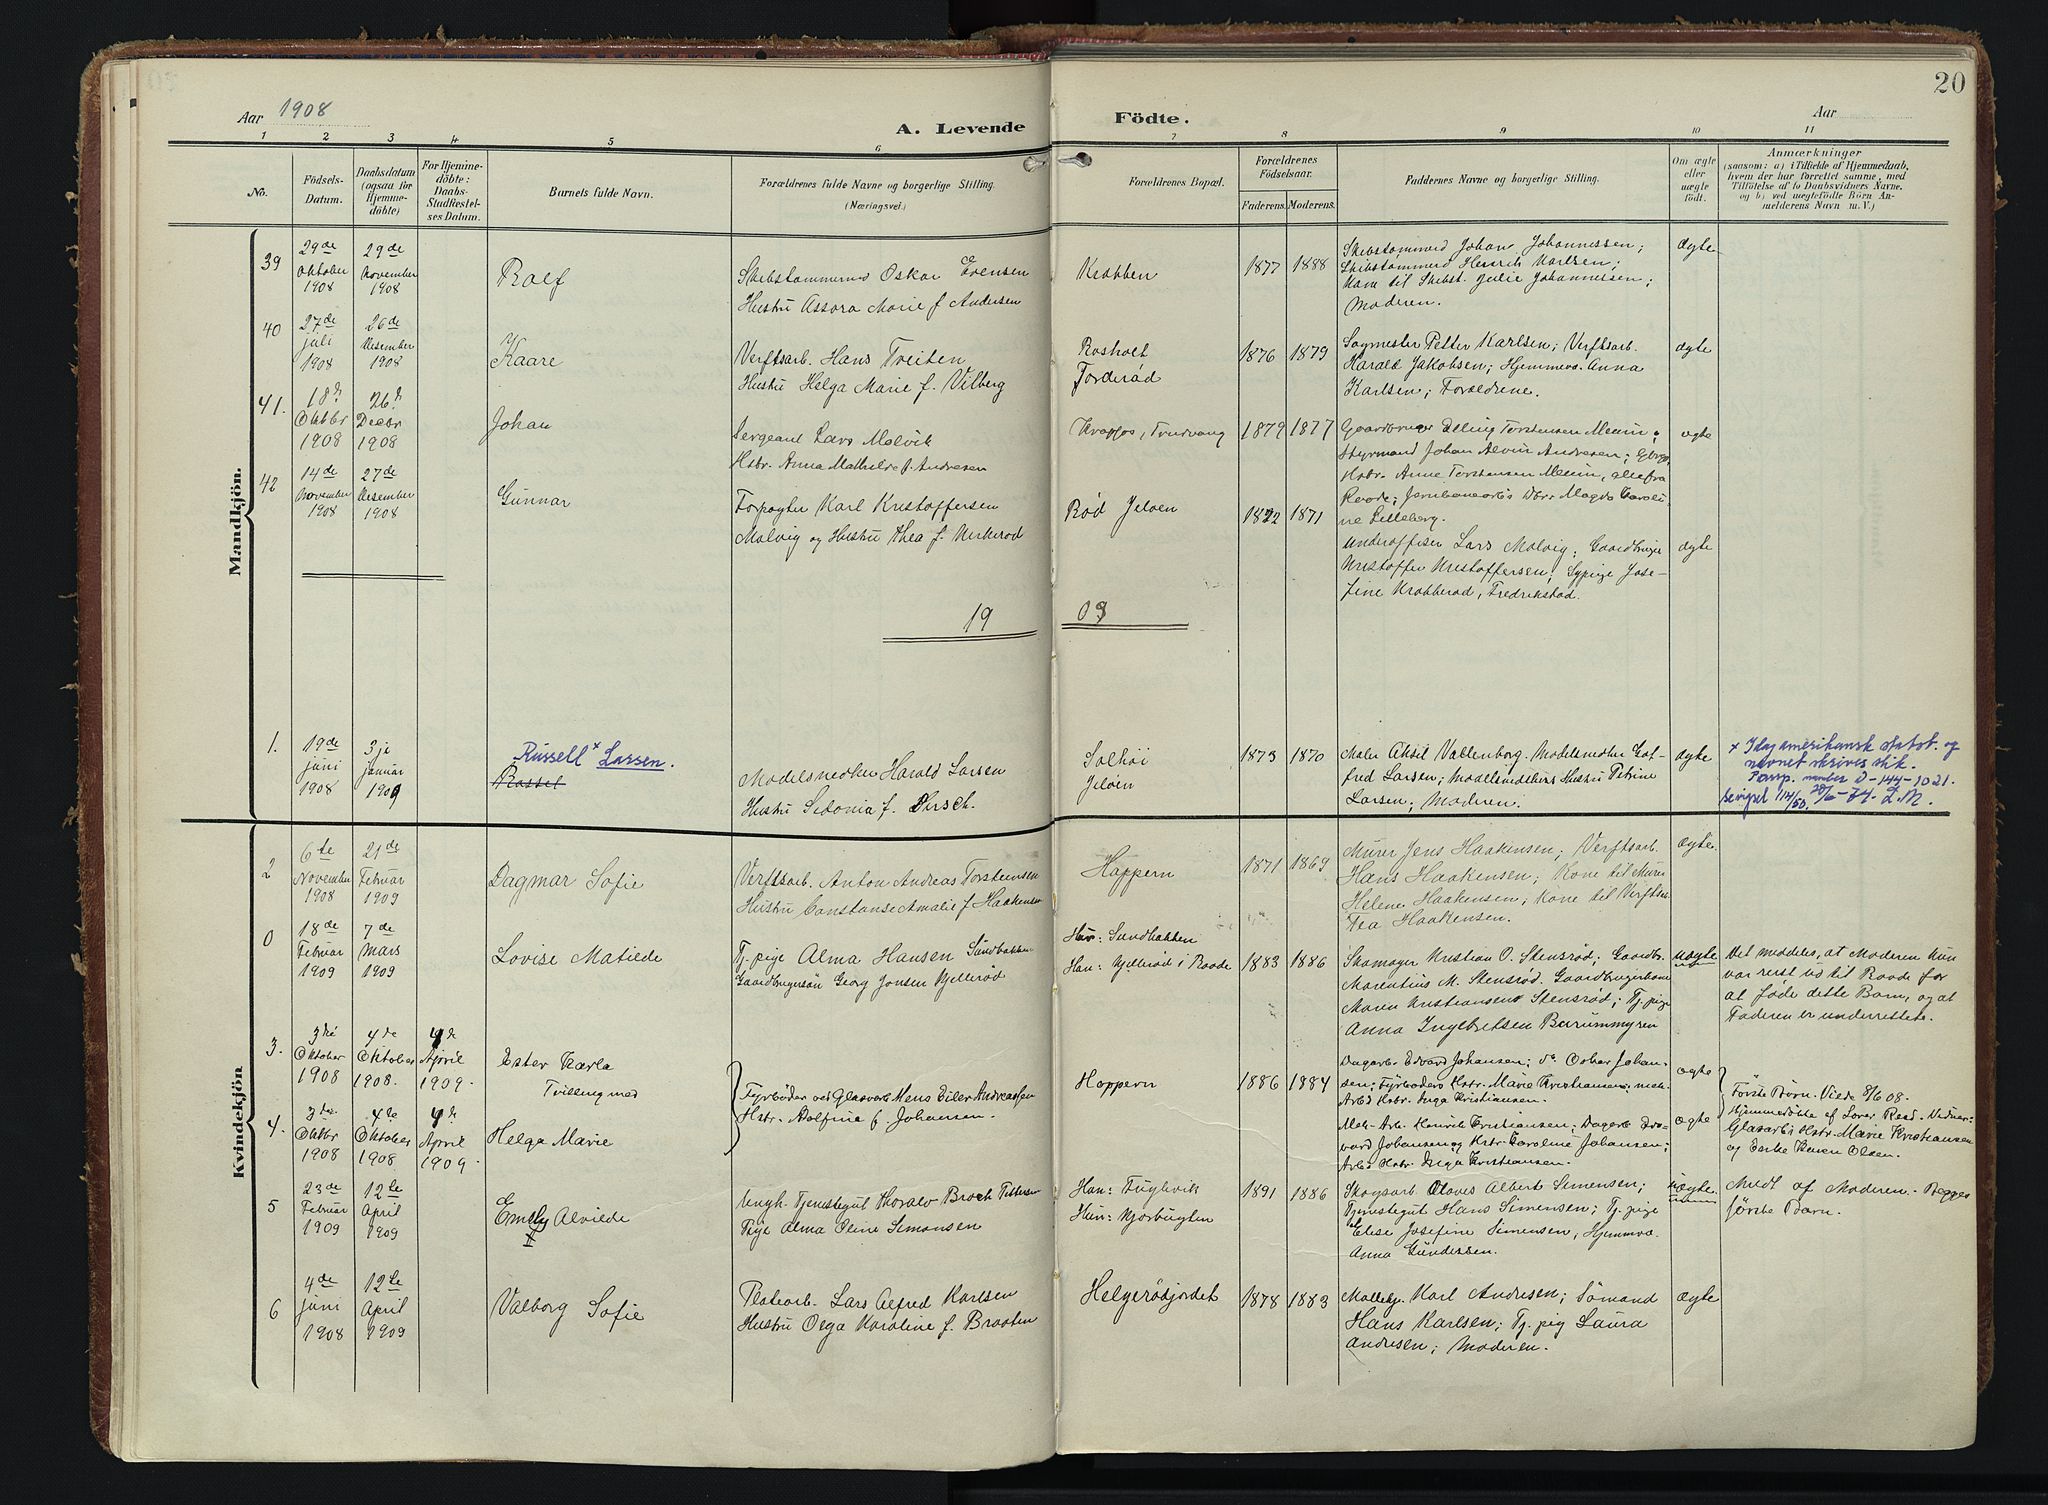 20
Aar 1908
A. Levende
Födte.
Aar
1 2 3 4 5 6 7 8 9 10 11
No.
Födsels-
Datum.
Daabsdatum
(ogsaa for
Hjemme-
döbte)
For Hjemme-
döbte:
Daabs-
Stadfestel-
ses Datum.
Barnets fulde Navn.
Forældrenes fulde Navne og borgerlige Stilling.
(Næringsvei.)
Forældrenes Bopæl.
Forældrenes
Födselsaar.
Faderens. Moderens.
Faddernes Navne og borgerlige Stilling.
Om ægte
eller
uægte
födt.
Anmærkninger
(saasom: a) i Tilfælde af Hjemmedaab,
hvem der har forrettet samme, med
Tilföielse af to Daabsvidners Navne,
og b) ved uægtefödte Börn An-
melderens Navn m. V.)
Mandkjön.
39
29de
Oktober
1908
29de
November
1908
Rolf
Skibstømmermd Oskar Evensen
Hustru Assora Marie f. Andersen
Krabben
1877 1888
Skibstømmerd Johan Johannessen;
Skibstømmerd Henrik Karlsen;
Kone til Skibst. Julie Johannessen;
Moderen.
ægte
40
27de
juli
1908
26de
Desember
1908
Kaare
Verftsarb. Hans Treiten
Hustru Helga Marie f. Vilberg
Rosholt
Torderød
1876 1879
Sagmester Petter Karlsen; Verftsarb.
Harald Jakobsen; Hjemmev. Anna
Karlsen; Forældrene.
ægte
41.
18de
Oktbr
1908
26de
Decbr
1908
Johan
Sergeant Lars Molvik
Hstr. Anna Mathilde f. Andresen
1879 1877
Gaardbruger Elling Torstensen Meum;
Styrmand Johan Alvin Andresen; Gbrgs
Hstr. Anne Torstensen Meum, alle fra
Raade; Jernbanearb's Dttr Magda Caroli-
ne Lilleberg.
ægte
42
14de
November
1908
27de
Desember
1908
Gunnar
Forpagter Karl Kristoffersen
Molvig og Hustru Thea f. Kirkerød
Rød Jeløen
1871
Underoffiser Lars Molvig; Gaardbruger
Kristoffer Kristoffersen; Sypige Jose-
fine Krabberød, Fredrikstad.
ægte
19
09
Kvindekjön
1.
19de
juni
1908
3je
januar
1909
Russell x Larsen.
Rassel
Modelsnedker Harald Larsen
Hustru Sidonia f. Pirsch.
Solhøi
Jeløen
1873 1870
Maler Aksel Vallenborg. Modelsnedker Got-
fred Larsen; Modelsnedkers Hustru Petrine
Larsen; Moderen.
ægte
x Idag amerikansk statsb. og
navnet skrives slik.
Passp. number D-144-1021.
114/50, 20/6-74. L.M.
2
6te
November
1908
21de
Februar
1909
Dagmar Sofie
Verftsarb. Anton Andreas Torstensen
Hustru Constanse Amalie f. Haakensen
Hoppern
1871 1869
Murer Jens Haakensen; Verftsarb.
Hans Haakensen; Kone til Murer
Helene Haakensen; Kone til Verftsar.
Tea Haakensen.
ægte
0
18de
Februar
1909
7de
Mars
1909
Lovise Matilde
Tj. pige Alma Hansen Sundbakken
Gaardbrugersøn Georg Jonsen Kjellerød
Hun: Sundbakken
Han: Kjellerød i Raade
1883 1886
Skomager Kristian O. Stensrød; Gaardbr.
Marentius M. Stensrød. Gaardbrugerkone
Maren Kristiansen Stensrød; Tj. pige
Anna Ingebretsen Barummyren
uægte
Det meddeles, at Moderen kun
var reist ud til Raade for
at føde dette Barn, og at
Faderen er underrettet.
3.
3die
Oktober
1908
4de
Oktober
1908.
4de
April
1909.
Ester Karla
Tvilling med
Fyrbøder ved Glasverk Hans Eiler Andreassen
Hstr. Adolfine f. Johansen.
Hoppern
1886 1884
Dagarb. Edvard Johansen; do Oskar Johan-
sen; Fyrbøders Hstr. Marie Kristiansen; mek.
Arb's Hstr. Inga Kristiansen.
ægte
Første Børn. Viede 8/6 08.
Hjemmedøbte af Lærer Reed. Vidner:
Glasarb's Hstr. Marie Kristiansen
og Enke Karen Olsen.
4.
3die
Oktbr
1908
4de
Oktober
1908
4de
April
1909.
Helga Marie
Mek. Arb. Henrik Kristiansen; Dagarb. Ed-
vard Johansen og Hstr. Caroline Johansen;
Arb's Hstr. Inga Kristiansen.
ægte
5
23de
Februar
1909
12te
April
1909
Emely Alvilde
Ungk. Tjenestegut Thoralv Broch Pettersen
Pige Alma Oline Simonsen
Han: Fuglevik
Hun: Kjørbugten
1891 1886
Skogsarb. Olaves Albert Simensen;
Tjenestegut Hans Simensen; Tj. pige
Elise Josefine Simensen, Hjemmev.
Anna Gundersen.
uægte
Mudl. af Moderen. Begges
første Barn.
6
4de
juni
1908
12te
April
1909
Valborg Sofie
Platearb. Lars Alfred Karlsen
Hustru Olga Karoline f. Braaten
Helgerødjordet
1878 1883
Karl Andresen; Sømand
Hans Karlsen; Tj. pig Laura
Andresen; Moderen.
ægte